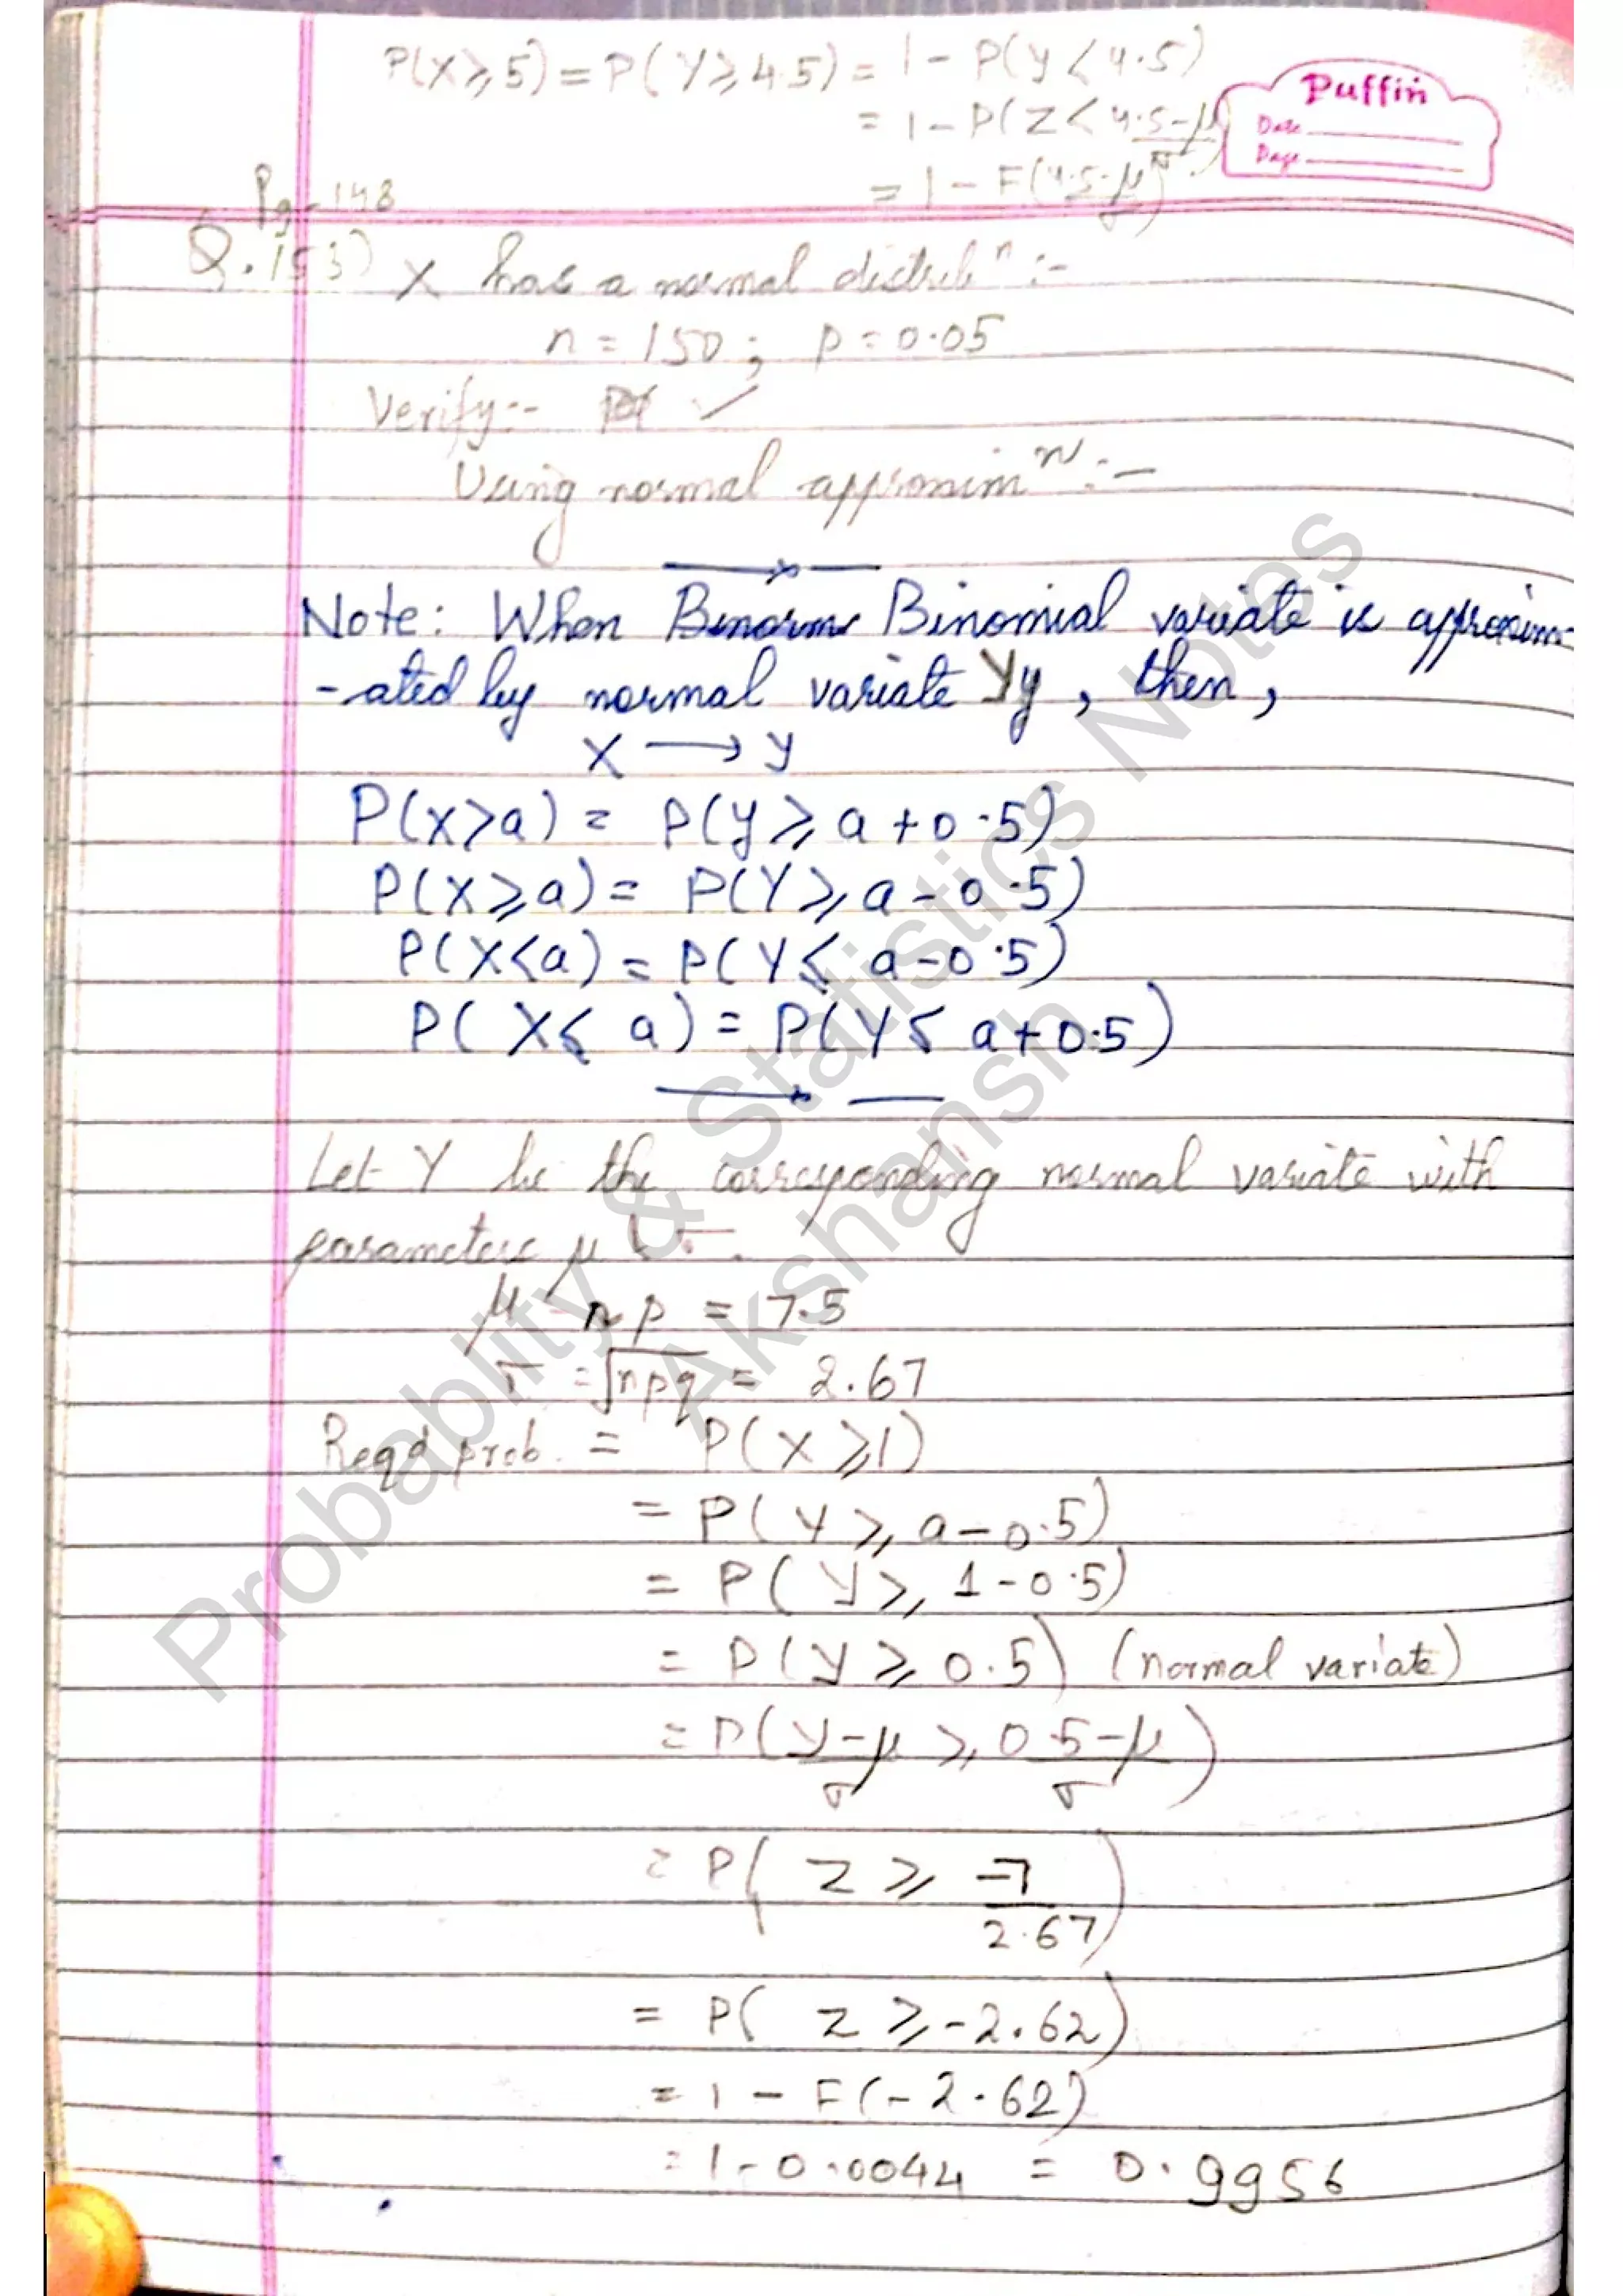 P(X⩾5) = P(Y⩾4.5) = 1 - P(Y<4.5)
= 1 - P(Z< (4.5-μ)/σ)
= 1 - F((4.5-μ)/σ)
Puffin
Date
Page
Pg-148
Q.153) X has a normal distribⁿ :-
n = 150 ; p = 0.05
Verify:- ✓
Using normal approximⁿ :-
Note: When Binomial variate is approxim-
-ated by normal variate Y y, then,
X → y
P(X>a) = P(Y⩾a+0.5)
P(X⩾a) = P(Y⩾a-0.5)
P(X<a) = P(Y⩽a-0.5)
P(X⩽a) = P(Y⩽a+0.5)
Let Y be the corresponding normal variate with
parameters μ & σ.
μ = np = 7.5
σ = √npq = 2.67
Reqd prob. = P(X⩾1)
= P(Y⩾a-0.5)
= P(Y⩾1-0.5)
= P(Y⩾0.5) (normal variate)
= P((Y-μ)/σ ⩾ (0.5-μ)/σ)
= P(Z⩾ -7/2.67)
= P(Z⩾-2.62)
= 1 - F(-2.62)
= 1 - 0.0044 = 0.9956
Probablity & Statistics Notes
Akshansh